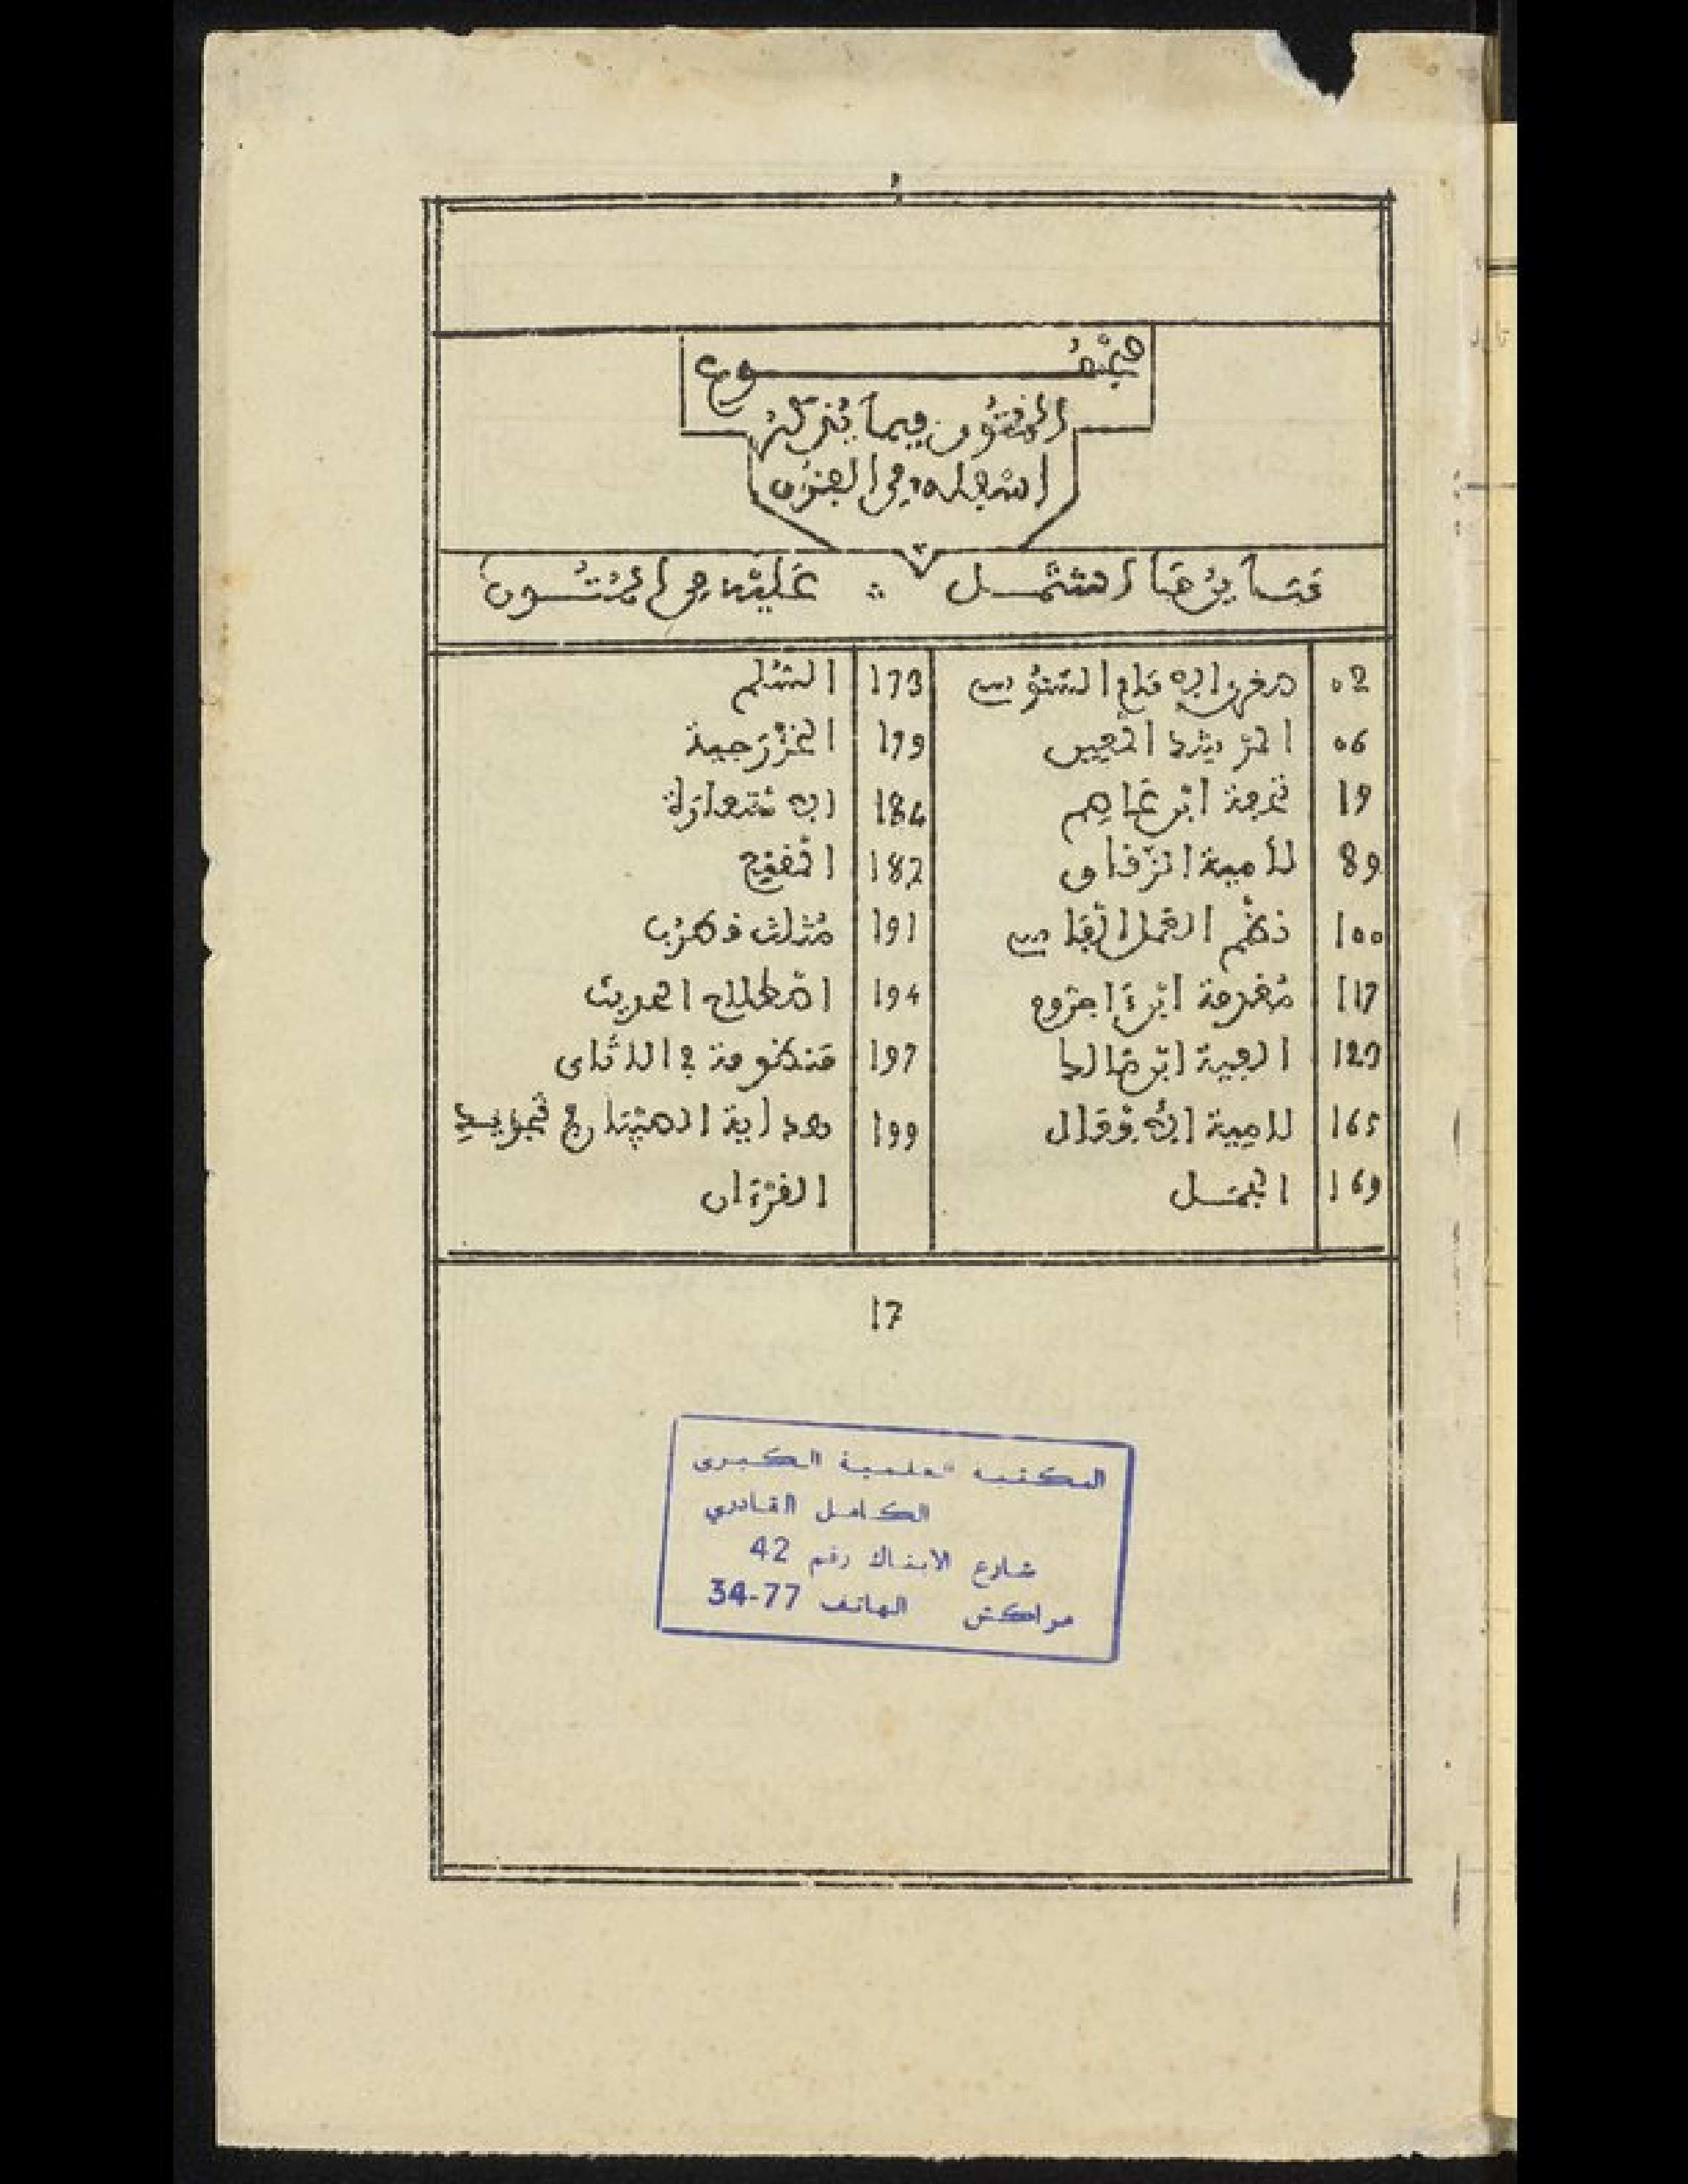 مجموع
المتون فيما يُذكر
من الفنون
على ما اشتمل :: عليه من المتون
02 صغرى الإمام السنوسي 173 السلم
06 المرشد المعين 179 الخزرجية
19 تحفة ابن عاصم 184
89 لامية الزقاق 182 المقنع
100 نظم العمل الفاسي 191 مثلث قطرب
117 مقدمة ابن ءاجروم 194 اصطلاح الحديث
123 الفية ابن مالك 197 منظومة في
165 لامية 199 هداية تجويد
169 الجمل القرءان
17
المكتبة العلمية الكبرى
الكامل القادري
شارع الابناك رقم 42
مراكش الهاتف 77-34